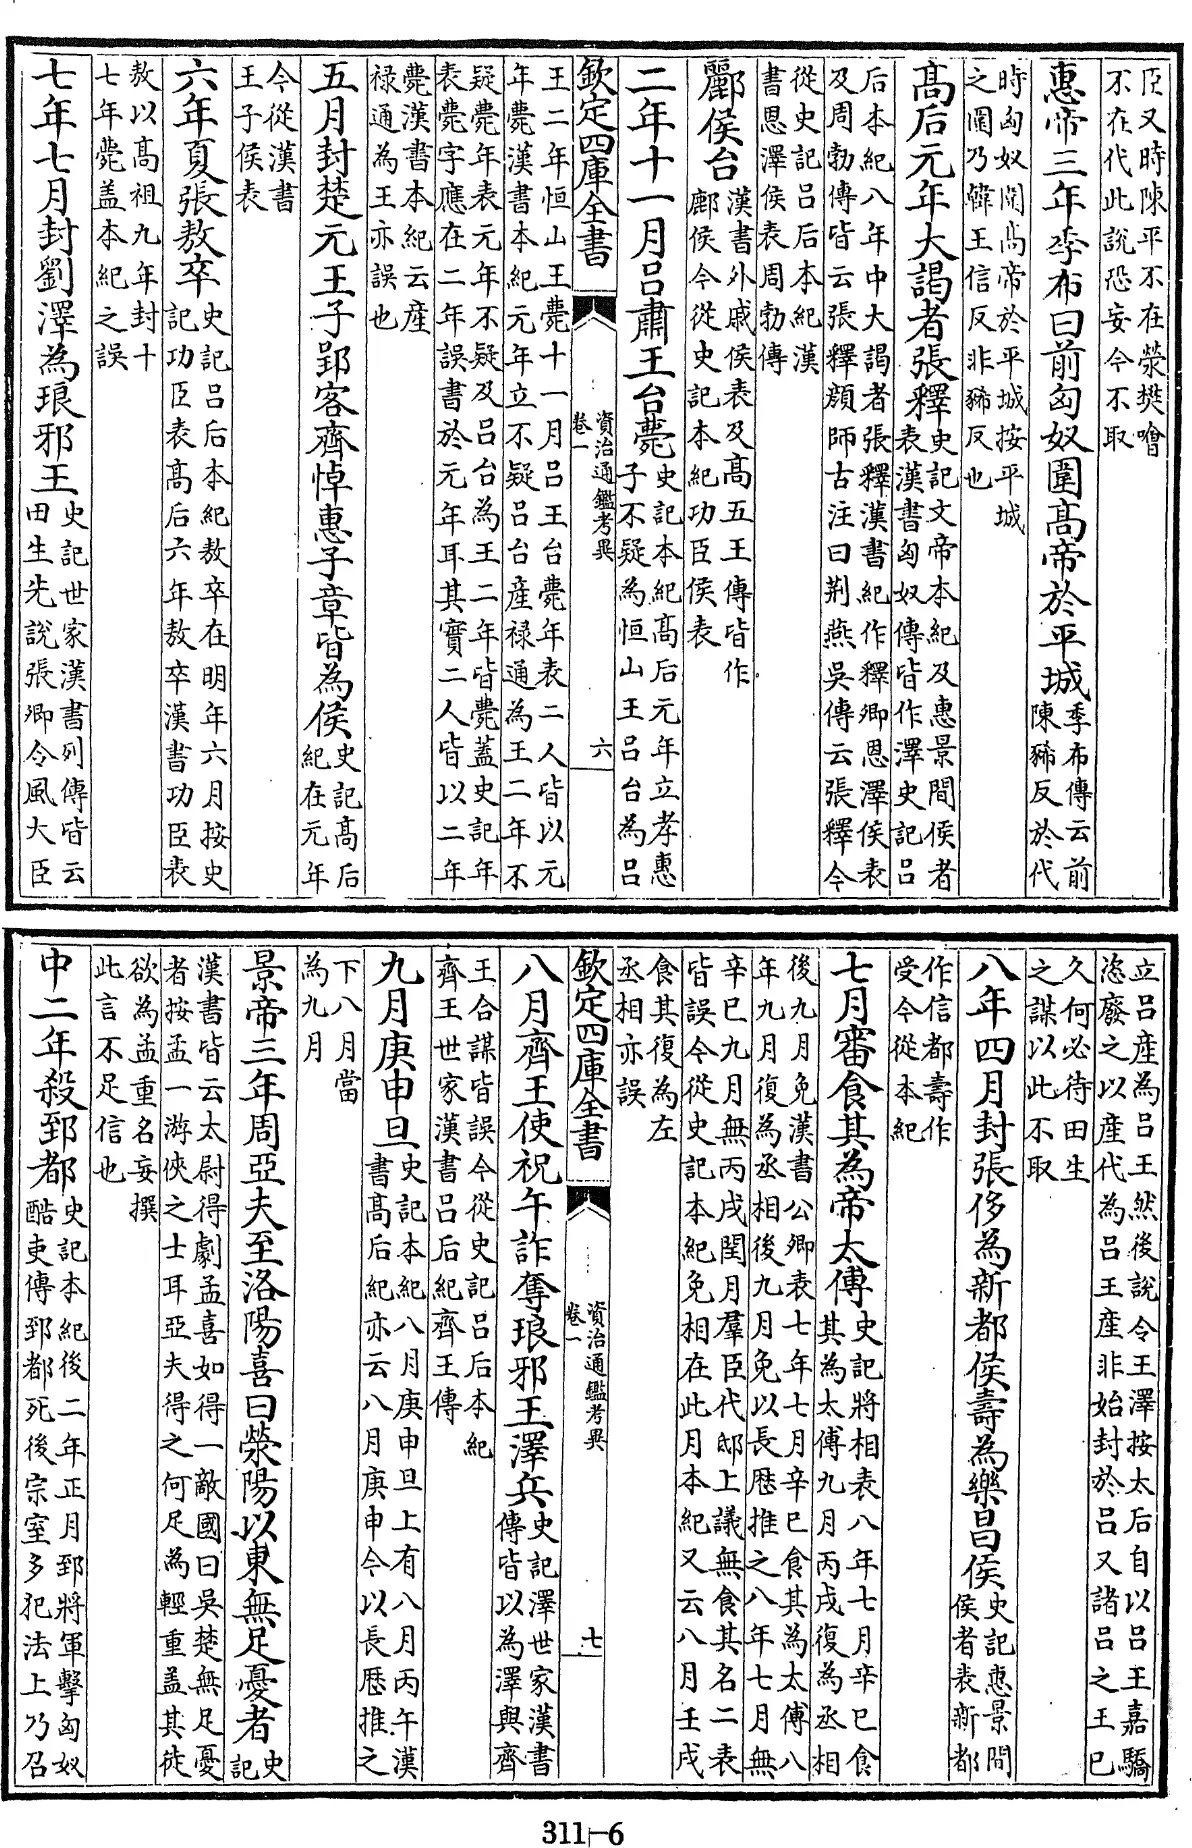 臣又時陳平不在滎樊噲
不在代此說恐妄今不取
惠帝三年季布曰前匈奴圍高帝於平城
季布傳云前
陳豨反於代
時匈奴圍高帝於平城按平城
之圍乃韓王信反非豨反也
髙后元年大謁者張釋
史記文帝本紀及惠景間侯者
表漢書匈奴傳皆作澤史記呂
后本紀八年中大謁者張釋漢書紀作釋卿恩澤侯表
及周勃傳皆云張釋顔師古注曰荆燕吳傳云張釋今
從史記呂后本紀漢
書恩澤侯表周勃傳
酈侯台
漢書外戚侯表及髙五王傳皆作
鄜侯今從史記本紀功臣侯表
二年十一月呂肅王台薨
史記本紀髙后元年立孝惠
子不疑為恒山王呂台為呂
欽定四庫全書
資治通鑑考異
卷一
六
王二年恒山王薨十一月呂王台薨年表二人皆以元
年薨漢書本紀元年立不疑呂台産祿通為王二年不
疑薨年表元年不疑及呂台為王二年皆薨蓋史記年
表薨字應在二年誤書於元年耳其實二人皆以二年
薨漢書本紀云産
祿通為王亦誤也
五月封楚元王子郢客齊悼惠子章皆為侯
史記髙后
紀在元年
今從漢書
王子侯表
六年夏張敖卒
史記呂后本紀敖卒在明年六月按史
記功臣表髙后六年敖卒漢書功臣表
敖以髙祖九年封十
七年薨蓋本紀之誤
七年七月封劉澤為琅邪王
史記世家漢書列傳皆云
田生先說張卿令風大臣
立呂産為呂王然後說令王澤按太后自以呂王嘉驕
恣廢之以産代為呂王産非始封於呂又諸呂之王已
久何必待田生
之謀以此不取
八年四月封張侈為新都侯壽為樂昌侯
史記惠景間
侯者表新都
作信都壽作
受今從本紀
七月審食其為帝太傅
史記將相表八年七月辛巳食
其為太傅九月丙戌復為丞相
後九月免漢書公卿表七年七月辛巳食其為太傅八
年九月復為丞相後九月免以長厯推之八年七月無
辛巳九月無丙戌閏月羣臣代邸上議無食其名二表
皆誤今從史記本紀免相在此月本紀又云八月壬戌
食其復為左
丞相亦誤
欽定四庫全書
資治通鑑考異
卷一
七
八月齊王使祝午詐奪琅邪王澤兵
史記澤世家漢書
傳皆以為澤與齊
王合謀皆誤今從史記呂后本紀
齊王世家漢書呂后紀齊王傳
九月庚申旦
史記本紀八月庚申旦上有八月丙午漢
書髙后紀亦云八月庚申今以長厯推之
下八月當
為九月
景帝三年周亞夫至洛陽喜曰滎陽以東無足憂者
史
記
漢書皆云太尉得劇孟喜如得一敵國曰吳楚無足憂
者按孟一游俠之士耳亞夫得之何足為輕重蓋其徒
欲為孟重名妄撰
此言不足信也
中二年殺郅都
史記本紀後二年正月郅將軍擊匈奴
酷吏傳郅都死後宗室多犯法上乃召
311-6